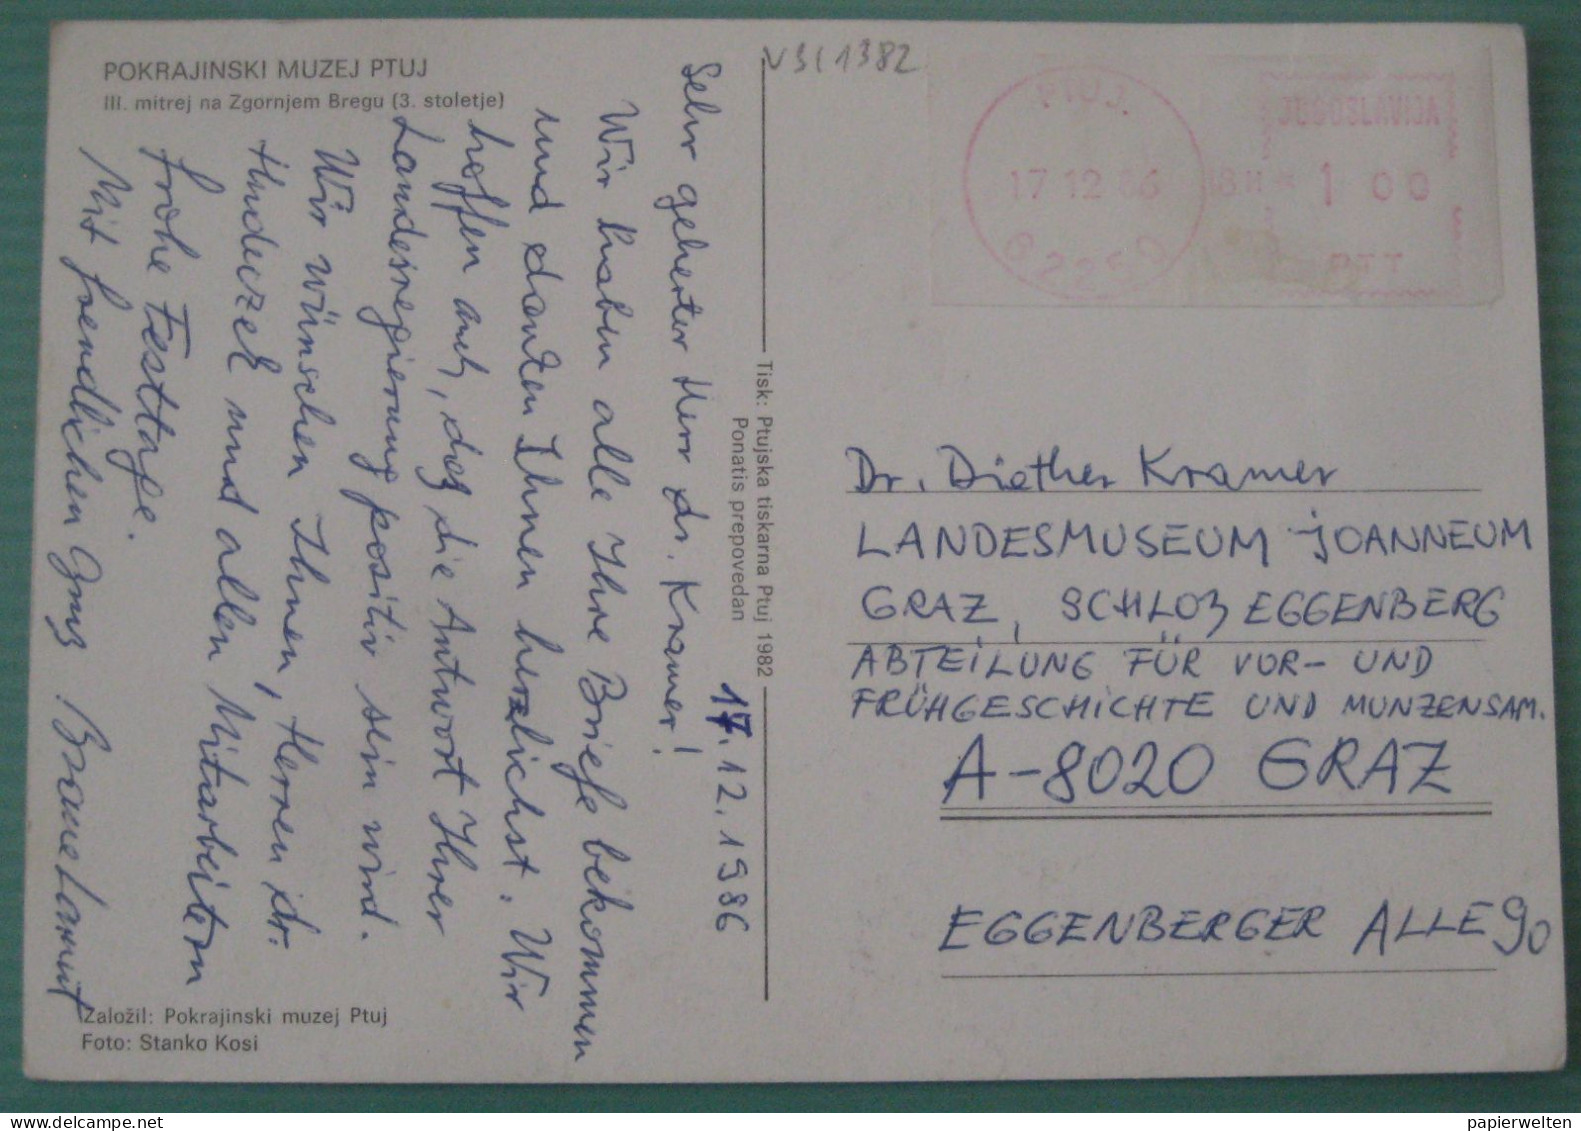 POKRAJINSKI MUZEJ PTUJ
III. mitrej na Zgornjem Bregu (3. stoletje)
V3(1382
PTUJ
17 12 86
62250
JUGOSLAVIJA
1 00
PTT
17.12.1986
Sehr geherter Herr dr. Kramer!
Wir haben alle Ihre Briefe bekommen
und danken Ihnen herzlichst. Wir
hoffen auch, daß die Antwort Ihrer
Landesregierung positiv sein wird.
Wir wünschen Ihnen, Herren dr.
Hudeczek und allen Mitarbeitern
frohe Festtage.
Mit freundlichen Gruß
Tisk: Ptujska tiskarna Ptuj 1982
Ponatis prepovedan
Dr. Diether Kramer
LANDESMUSEUM JOANNEUM
GRAZ, SCHLOß EGGENBERG
ABTEILUNG FÜR VOR- UND
FRÜHGESCHICHTE UND MUNZENSAM.
A-8020 GRAZ
EGGENBERGER ALLE 90
Založil: Pokrajinski muzej Ptuj
Foto: Stanko Kosi
papierwelten